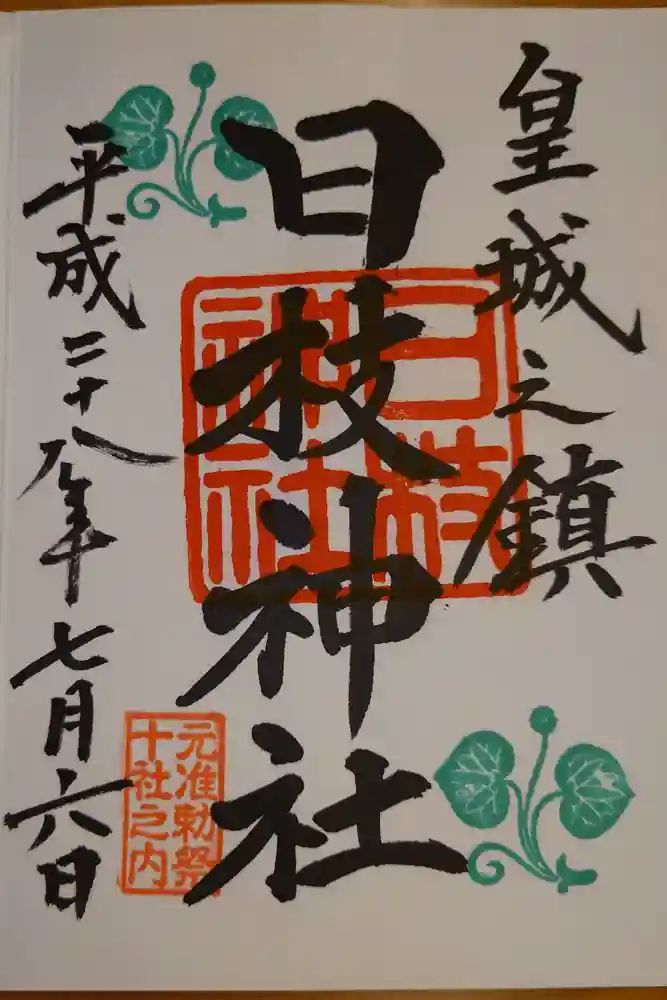 皇城之鎮
日枝神社
日枝
神社
元准勅祭
十社之内
平成二十八年七月六日